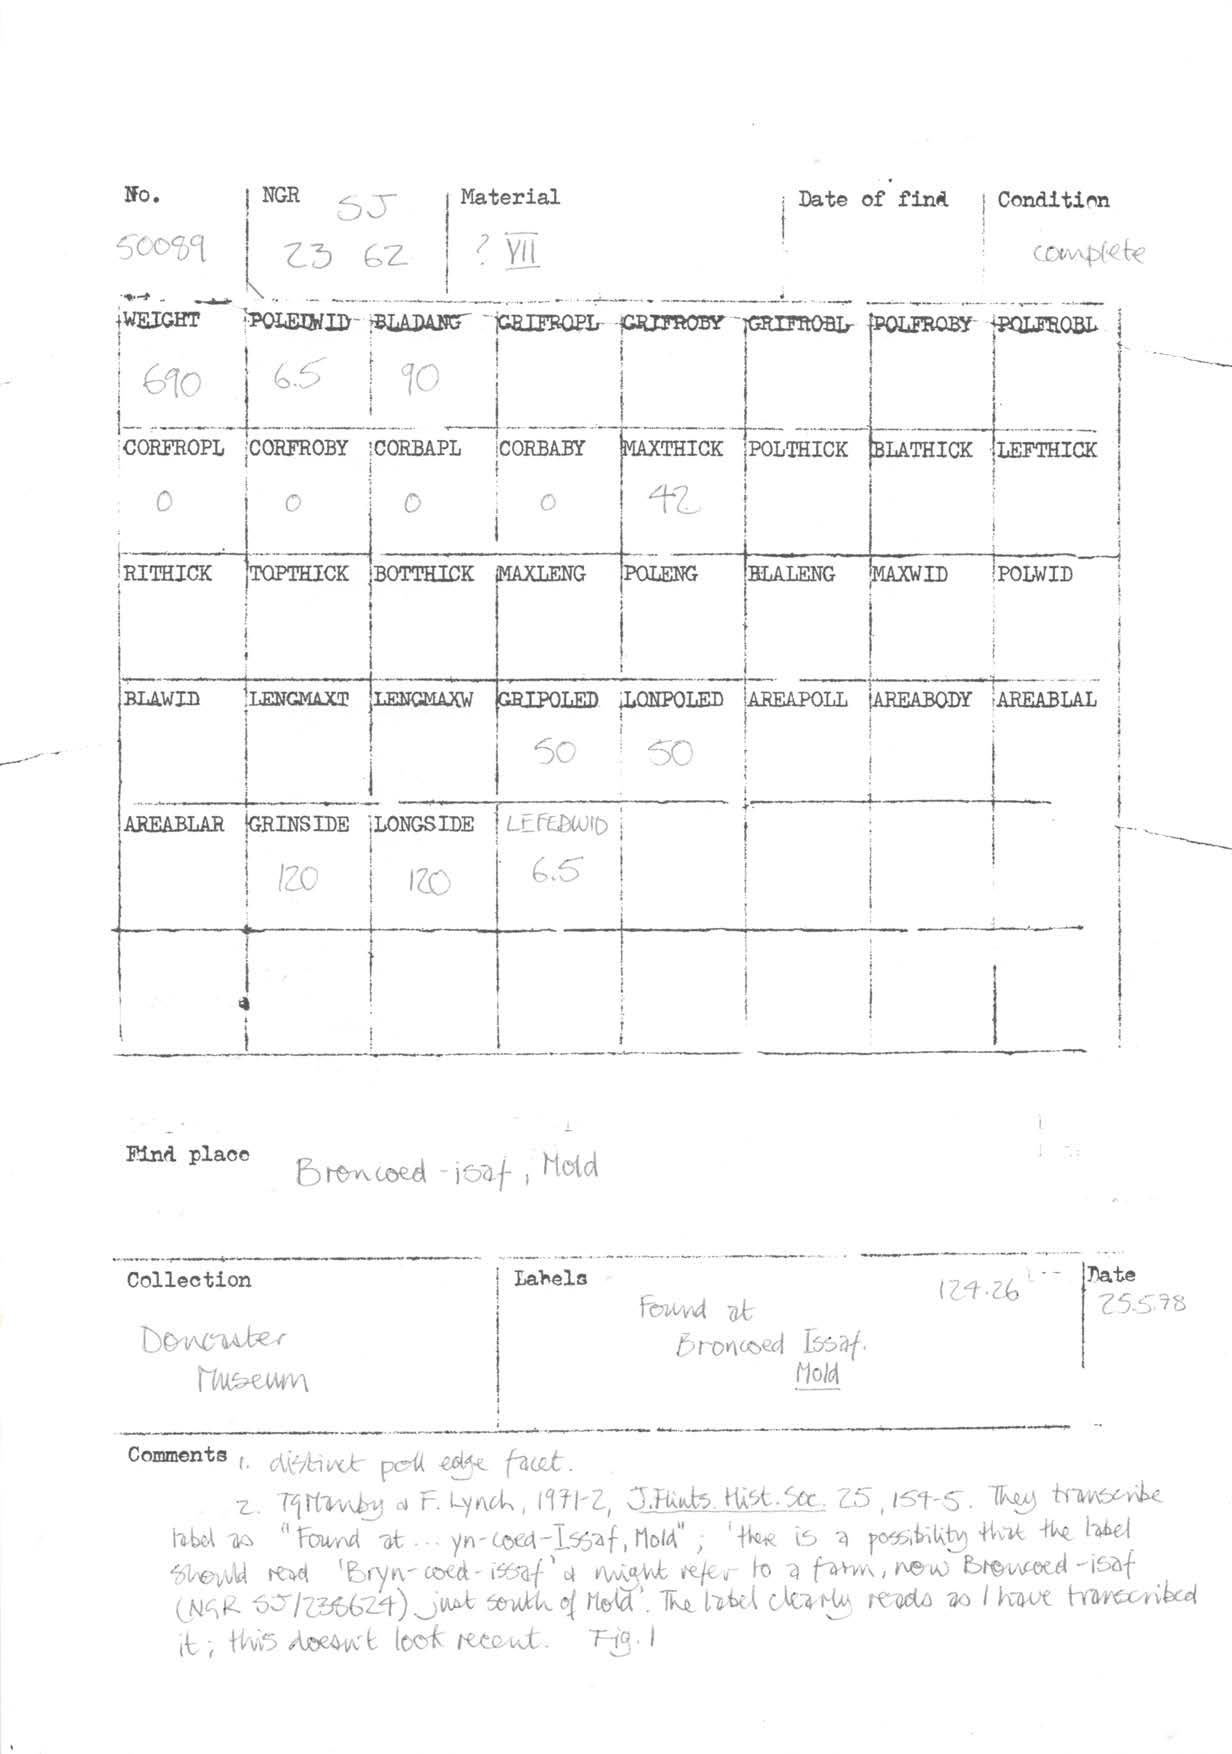 No. NGR SJ Material Date of find Condition
50089 23 62 ? VII complete
WEIGHT POLEDWID BLADANG GRIFROPL GRIFROBY GRIFROBL POLFROBY POLFROBL
690 6.5 90
CORFROPL CORFROBY CORBAPL CORBABY MAXTHICK POLTHICK BLATHICK LEFTHICK
0 0 0 0 42
RITHICK TOPTHICK BOTTHICK MAXLENG POLENG BLALENG MAXWID POLWID
BLAWID LENGMAXT LENGMAXW GRIPOLED LONPOLED AREAPOLL AREABODY AREABLAL
50 50
AREABLAR GRINSIDE LONGSIDE LEFEDWID
120 120 6.5
Find place Broncoed-isaf, Mold
Collection Labels 124.26 Date
Found at 25.5.78
Doncaster Broncoed Issaf.
Museum Mold
Comments 1. distinct poll edge facet.
2. TG Manby & F. Lynch, 1971-2, J. Flints. Hist. Soc. 25, 154-5. They transcribe
label as "Found at ... yn-coed-Issaf, Mold"; 'there is a possibility that the label
should read 'Bryn-coed-issaf' & might refer to a farm, now Broncoed-isaf
(NGR SJ/238624) just south of Mold'. The label clearly reads as I have transcribed
it; this doesn't look recent. Fig. 1